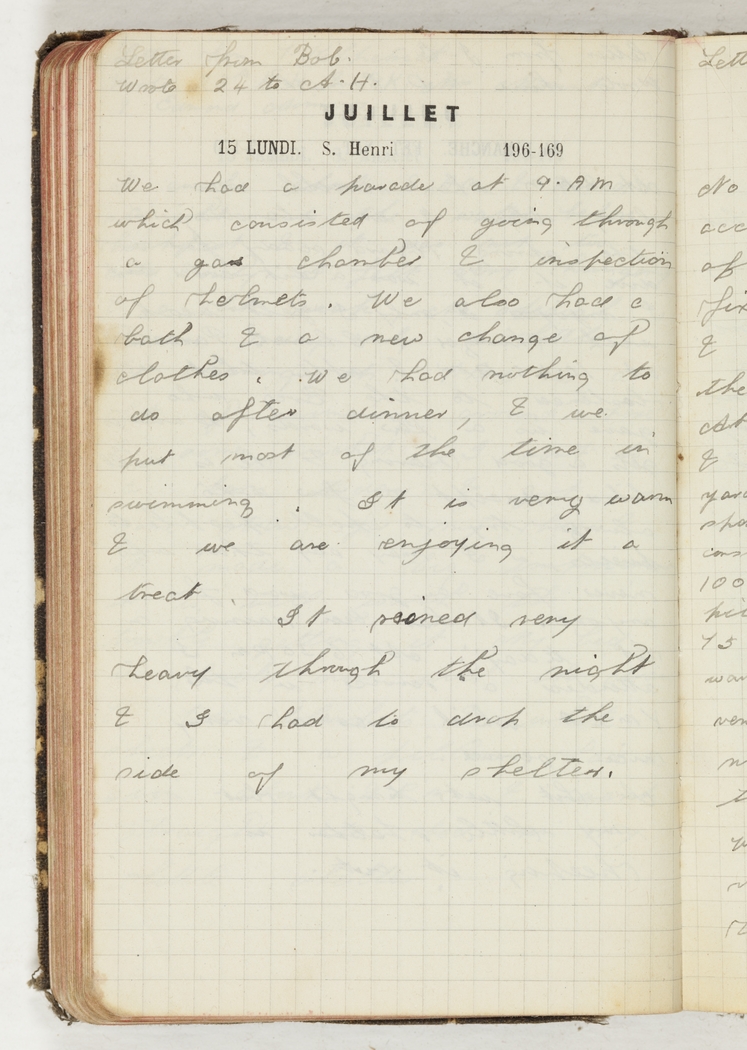 Letter from Bob.
Wrote 24 to A.H.
JUILLET
15 LUNDI. S. Henri 196-169
We had a parade at 9.AM
which consisted of going through
a gas chamber & inspection
of helmets. We also had a
bath & a new change of
clothes. We had nothing to
do after dinner, & we
put most of the time in
swimming. It is very warm
& we are enjoying it a
treat.
It rained very
heavy through the night
& I had to drop the
side of my shelter.
Lett
No
acc
of
fix
&
the
At
&
yard
spa
cons
100
75
war
ver